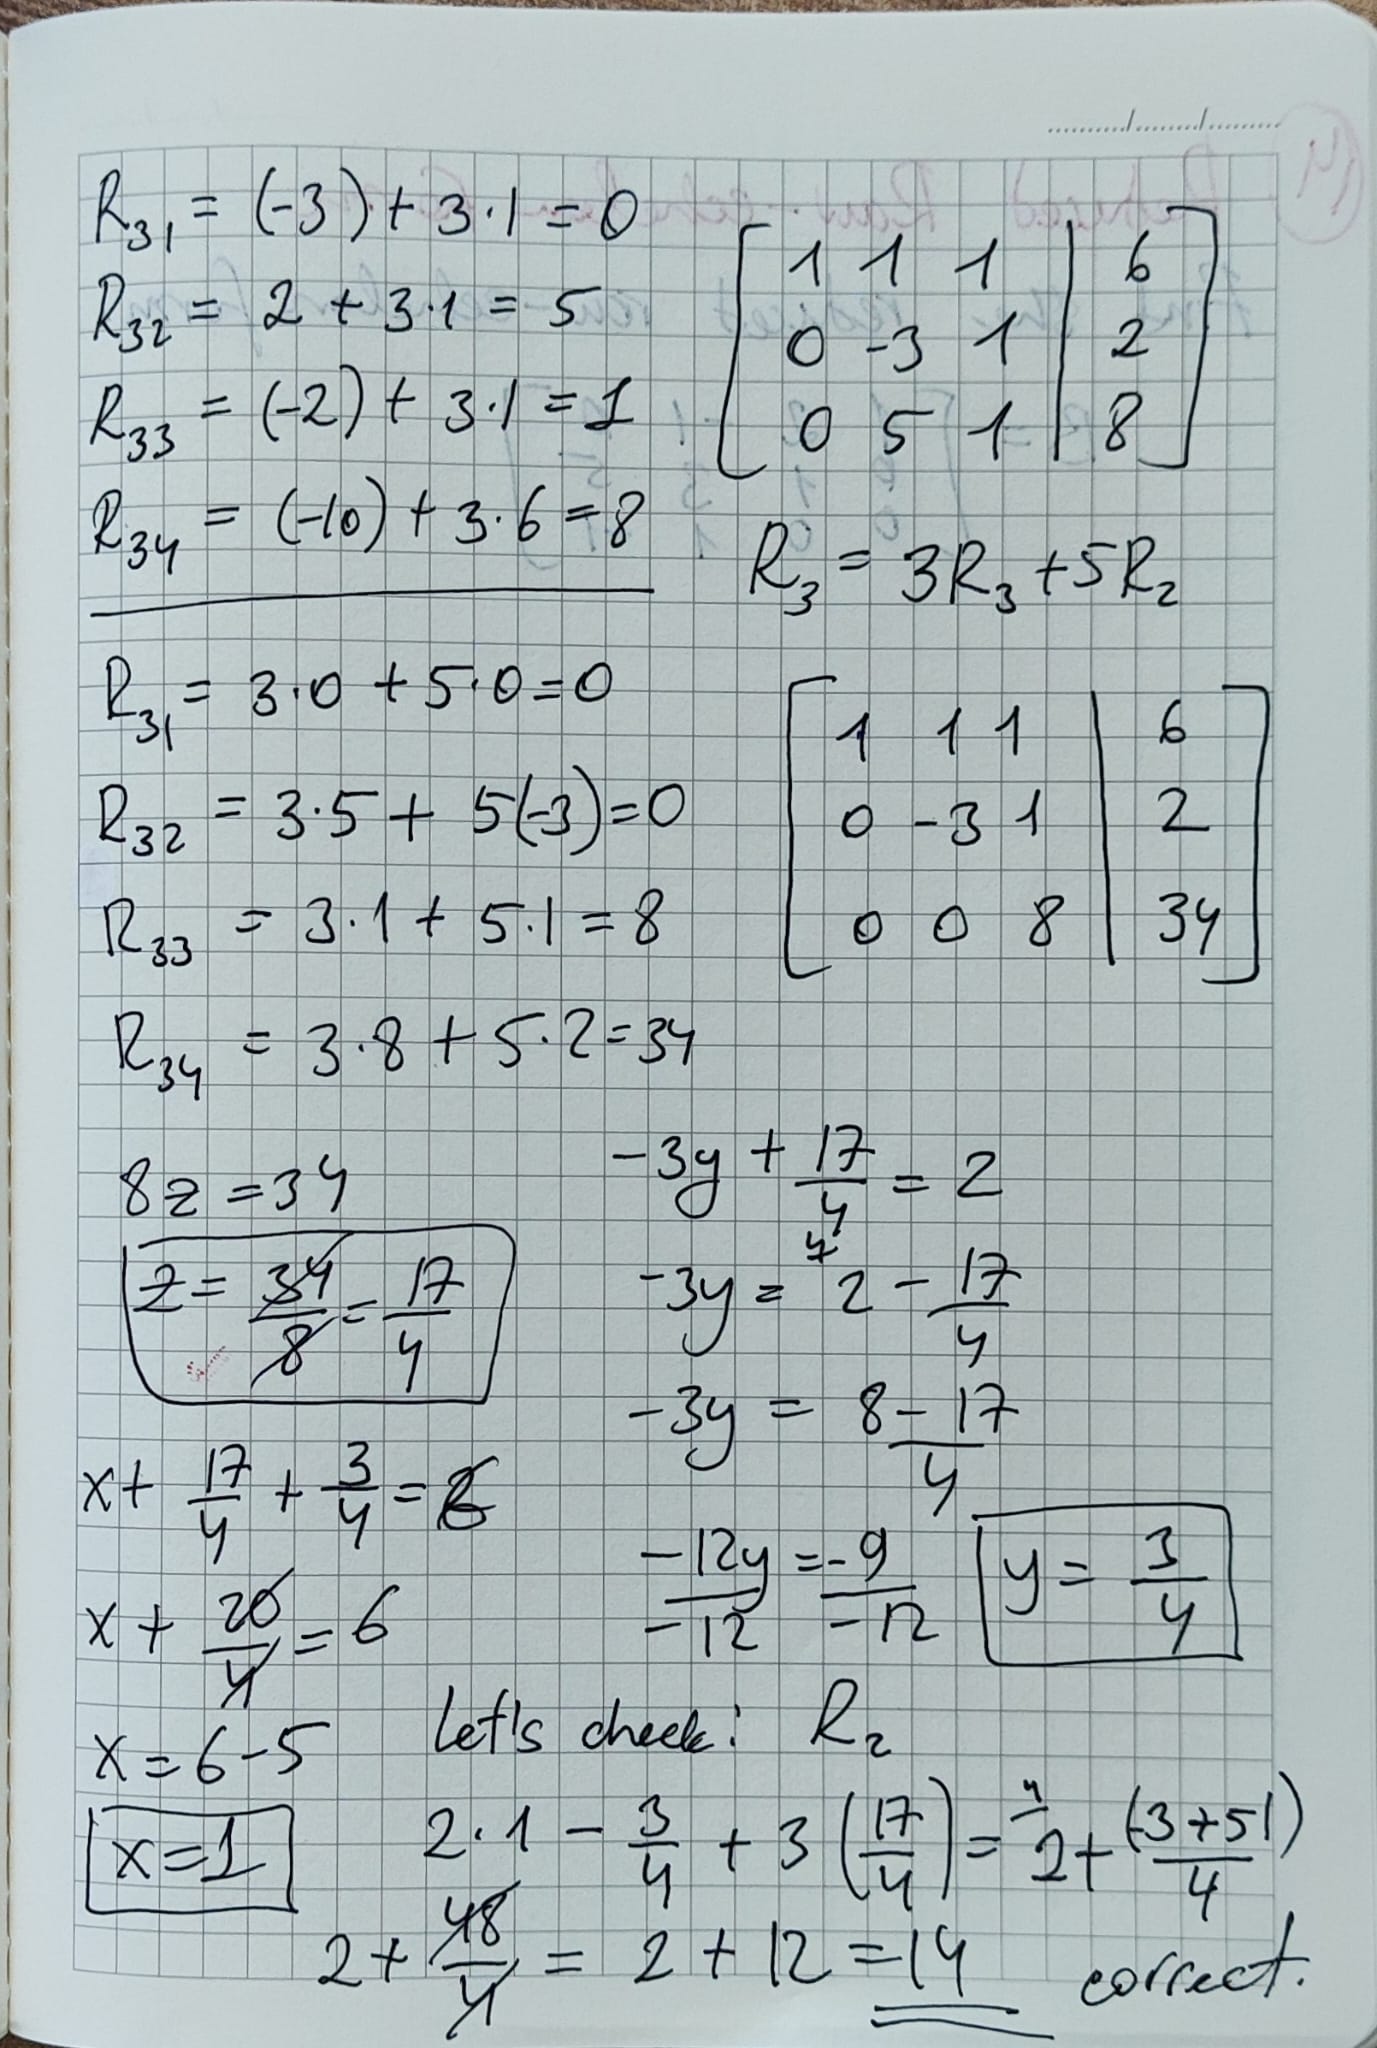 R₃₁ = (-3) + 3·1 = 0
R₃₂ = 2 + 3·1 = 5
R₃₃ = (-2) + 3·1 = 1
R₃₄ = (-10) + 3·6 = 8
[ 1 1 1 | 6 ]
[ 0 -3 1 | 2 ]
[ 0 5 1 | 8 ]
R₃ = 3R₃ + 5R₂
R₃₁ = 3·0 + 5·0 = 0
R₃₂ = 3·5 + 5(-3) = 0
R₃₃ = 3·1 + 5·1 = 8
R₃₄ = 3·8 + 5·2 = 34
[ 1 1 1 | 6 ]
[ 0 -3 1 | 2 ]
[ 0 0 8 | 34 ]
8z = 34
z = 34/8 = 17/4
-3y + 17/4 = 2
-3y = 2 - 17/4
-3y = 8 - 17/4
-12y/-12 = -9/-12
y = 3/4
x + 17/4 + 3/4 = 6
x + 20/4 = 6
x = 6 - 5
x = 1
Let's check: R₂
2·1 - 3/4 + 3(17/4) = 2 + (-3 + 51)/4
2 + 48/4 = 2 + 12 = 14 correct.